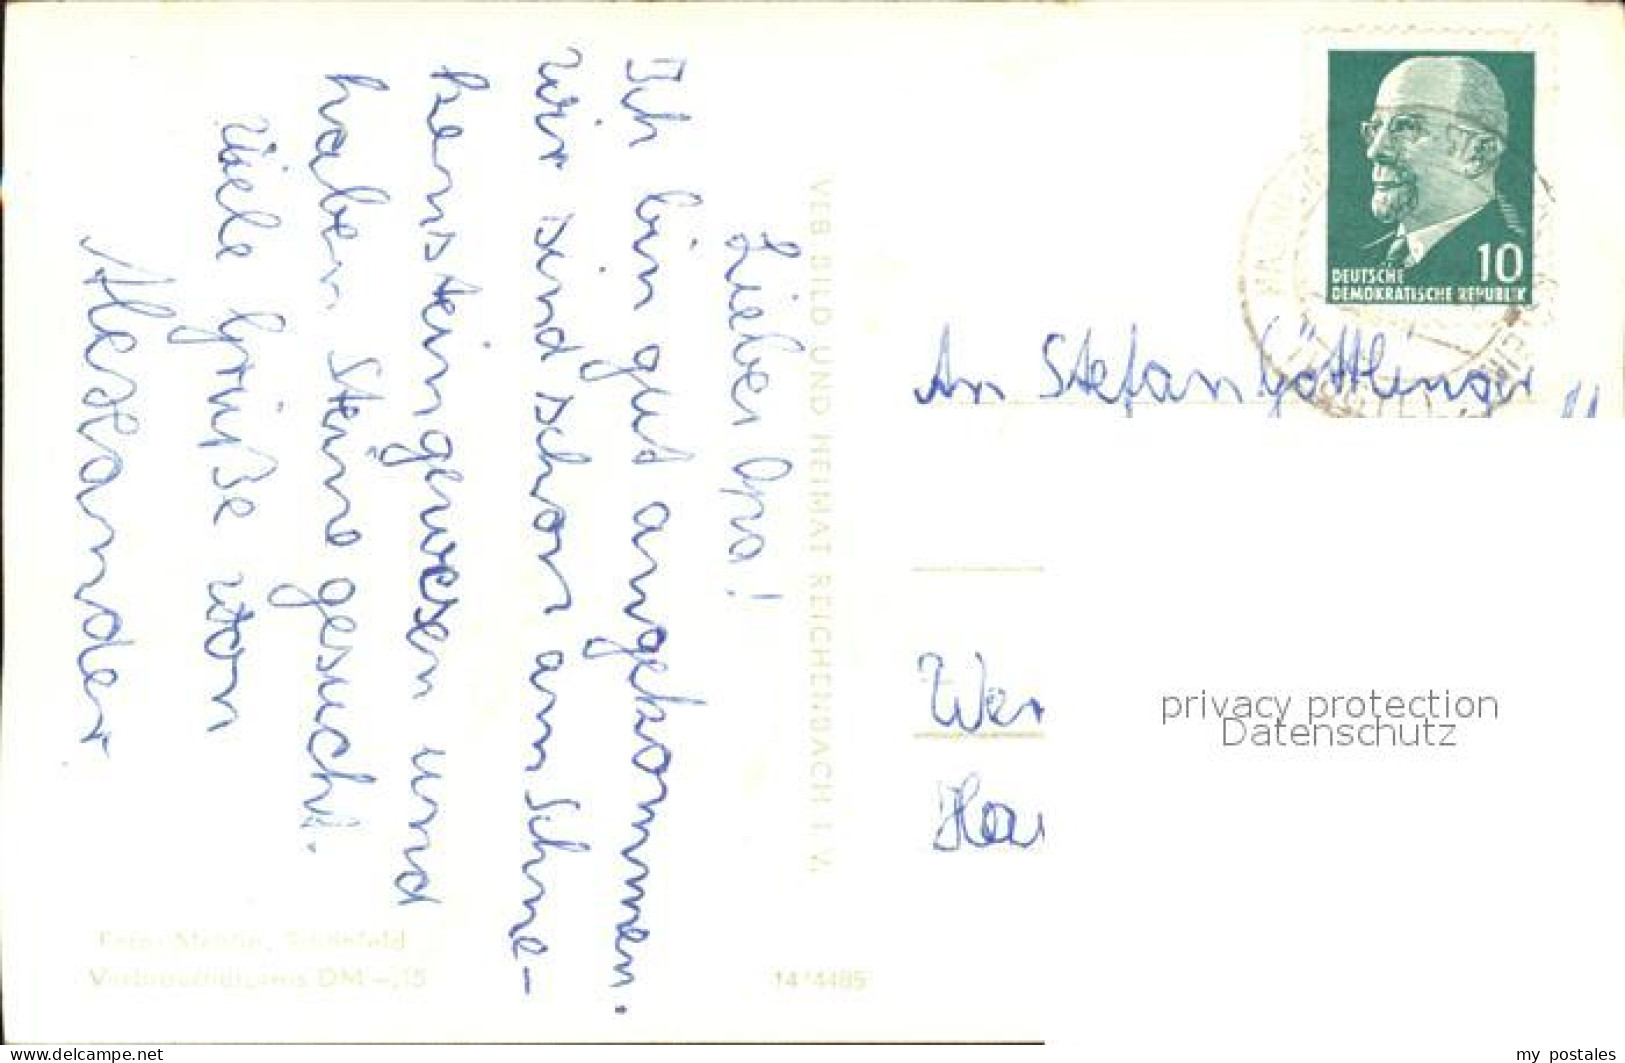 Lieber Opa!
Ich bin gut angekommen.
Wir sind schon am Schne-
kenstein gewesen und
haben Steine gesucht.
Viele Grüße von
Alexander
VEB BILD UND HEIMAT REICHENBACH I. V.
Verbraucherpreis DM -,15
14/4485
10
DEUTSCHE
DEMOKRATISCHE REPUBLIK
An Stefan Göttlinger
Wer
Ha
privacy protection
Datenschutz
https://www.delcampe.net
my_postales